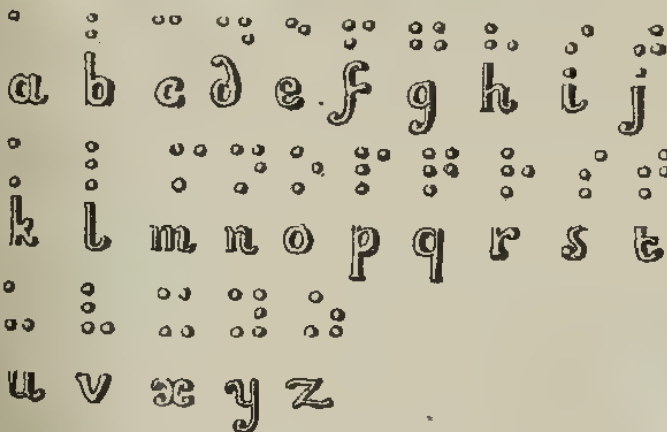 a b c d e f g h i j
k l m n o p q r s t
u v x y z